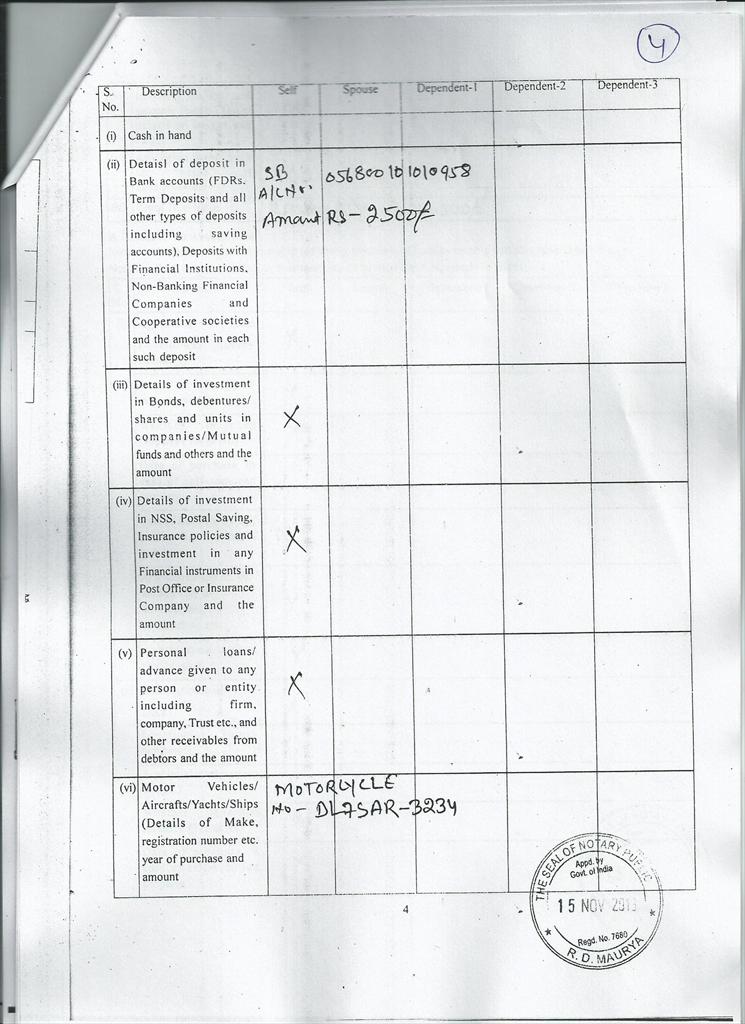 4
S. No. Description Self Spouse Dependent-1 Dependent-2 Dependent-3
(i) Cash in hand
(ii) Detaisl of deposit in
Bank accounts (FDRs.
Term Deposits and all
other types of deposits
including saving
accounts), Deposits with
Financial Institutions,
Non-Banking Financial
Companies and
Cooperative societies
and the amount in each
such deposit
SB 056800101010958
A/C No.
Amount RS-2500/-
(iii) Details of investment
in Bonds, debentures/
shares and units in
companies/Mutual
funds and others and the
amount
X
(iv) Details of investment
in NSS, Postal Saving,
Insurance policies and
investment in any
Financial instruments in
Post Office or Insurance
Company and the
amount
X
(v) Personal loans/
advance given to any
person or entity
including firm,
company, Trust etc., and
other receivables from
debtors and the amount
X
(vi) Motor Vehicles/
Aircrafts/Yachts/Ships
(Details of Make,
registration number etc.
year of purchase and
amount
MOTORCYCLE
No- DL7SAR-3234
4
THE SEAL OF NOTARY PUBLIC
Appd. by
Govt. of India
15 NOV 2013
Regd. No. 7680
R. D. MAURYA